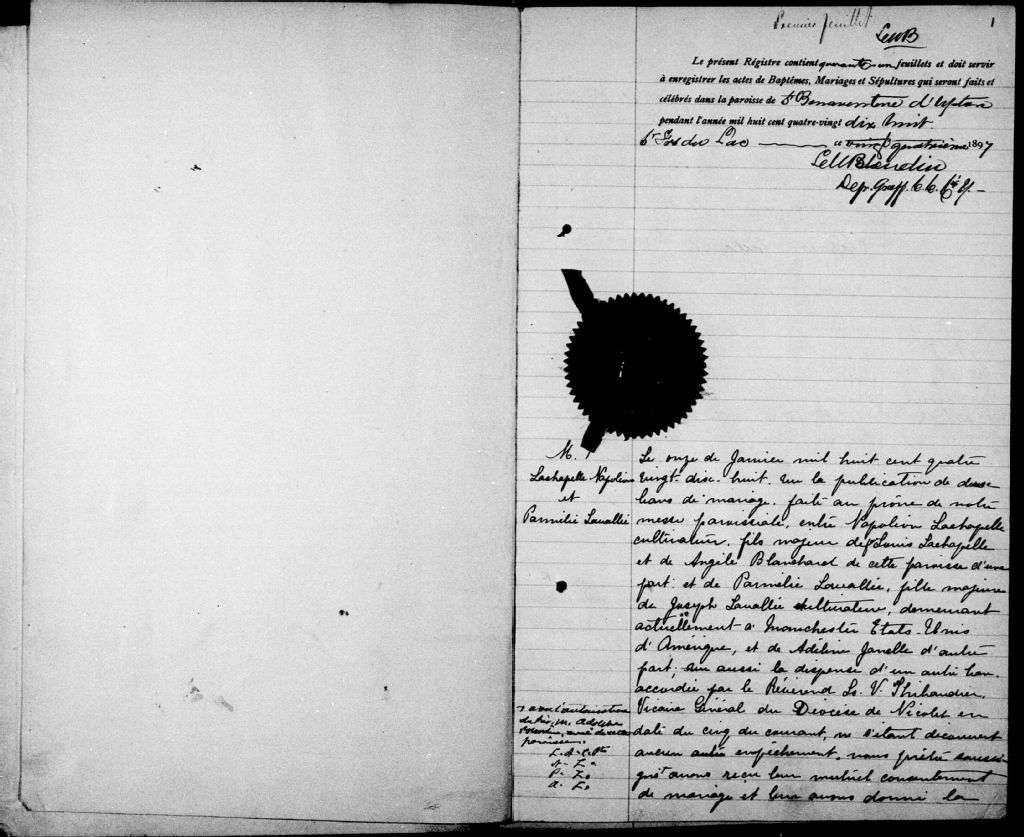 Premier feuillet
1
LeWB
Le présent Régistre contient quarante-un feuillets et doit servir
à enregistrer les actes de Baptêmes, Mariages et Sépultures qui seront faits et
célébrés dans la paroisse de St Bonaventure d'Upton
pendant l'année mil huit cent quatre-vingt dix huit.
ce vingt quatrième 1897
Dep. Greff.
M.
Lachapelle Napoléon
et
Parmélie Lavallée
Le onze de Janvier mil huit cent quatre
vingt-dix-huit. Vu la publication de deux
bans de mariage, faite au prône de notre
messe paroissiale, entre Napoléon Lachapelle
cultivateur, fils majeur de Louis Lachapelle
et de Angèle Blanchard de cette paroisse d'une
part: et de Parmélie Lavallée, fille majeure
de Joseph Lavallée cultivateur, demeurant
actuellement à Manchester Etats-Unis
d'Amérique, et de Adéline Janelle d'autre
part; vu aussi la dispense d'un autre ban,
accordée par le Révérend Ls. V. Thibaudier,
Vicaire Général du Diocèse de Nicolet en
date du cinq du courant, ne s'étant découvert
aucun autre empêchement, nous prêtre soussi-
gné avons reçu leur mutuel consentement
de mariage et leur avons donné la
avec l'autorisation
de Adolphe
curé de cette
paroisse.